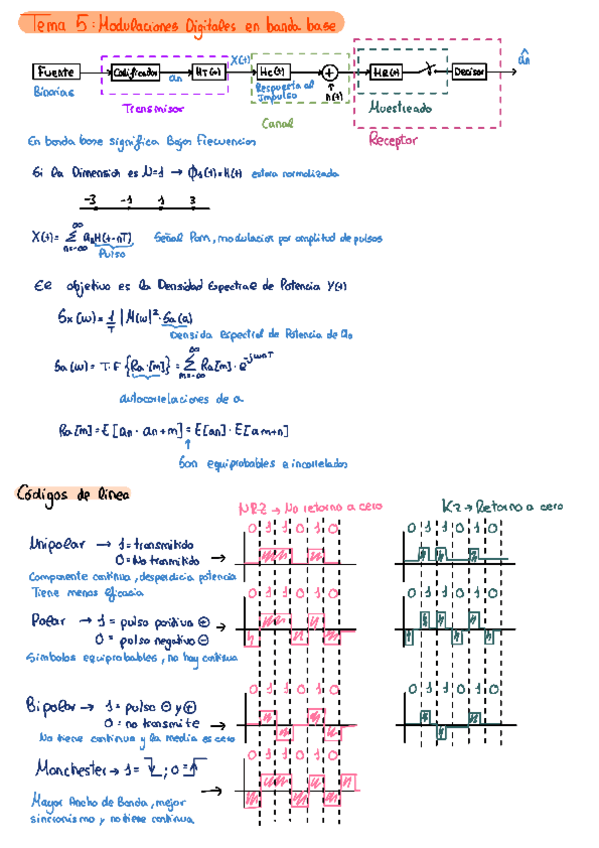 Tema 5: Modulaciones Digitales en banda base
Fuente
Codificador
HT(t)
X(t)
Hc(t)
+
HR(t)
Decisor
ân
Binarias
an
Respuesta al
Impulso
n(t)
Transmisor
Canal
Muestreado
Receptor
En banda base significa Bajas Frecuencias
Si la Dimension es N=1 → ϕ1(t)=H(t) estara normalizada
-3 -1 1 3
X(t)= ∞ Σ n=-∞ an H(t-nT) Señal Pam, modulacion por amplitud de pulsos
Pulso
El objetivo es la Densidad Espectral de Potencia Y(t)
Sx(w)= 1/T |H(w)|²·Sa(a)
Densida Espectral de Potencia de a0
Sa(w)= T·F {Ra[m]} = ∞ Σ m=-∞ Ra[m]·e^-jwmT
autocorrelaciones de a
Ra[m]=E[an·an+m]=E[an]·E[am+n]
Son equiprobables e incorrelados
Códigos de linea
NRZ → No retorno a cero
RZ → Retorno a cero
0 1 1 0 1 0
0 1 1 0 1 0
Unipolar → 1=transmitido
0=No trasmitido
Componente continua, desperdicia potencia
Tiene menos eficacia
0 1 1 0 1 0
0 1 1 0 1 0
Polar → 1= pulso positivo ⊕
0= pulso negativo ⊖
Simbolos equiprobables, no hay continua
0 1 1 0 1 0
0 1 1 0 1 0
Bipolar → 1= pulso ⊖ y ⊕
0= no transmite
No tiene continua y la media es cero
0 1 1 0 1 0
Manchester → 1= ; 0=
Mayor Ancho de Banda, mejor
sincronismo y no tiene continua